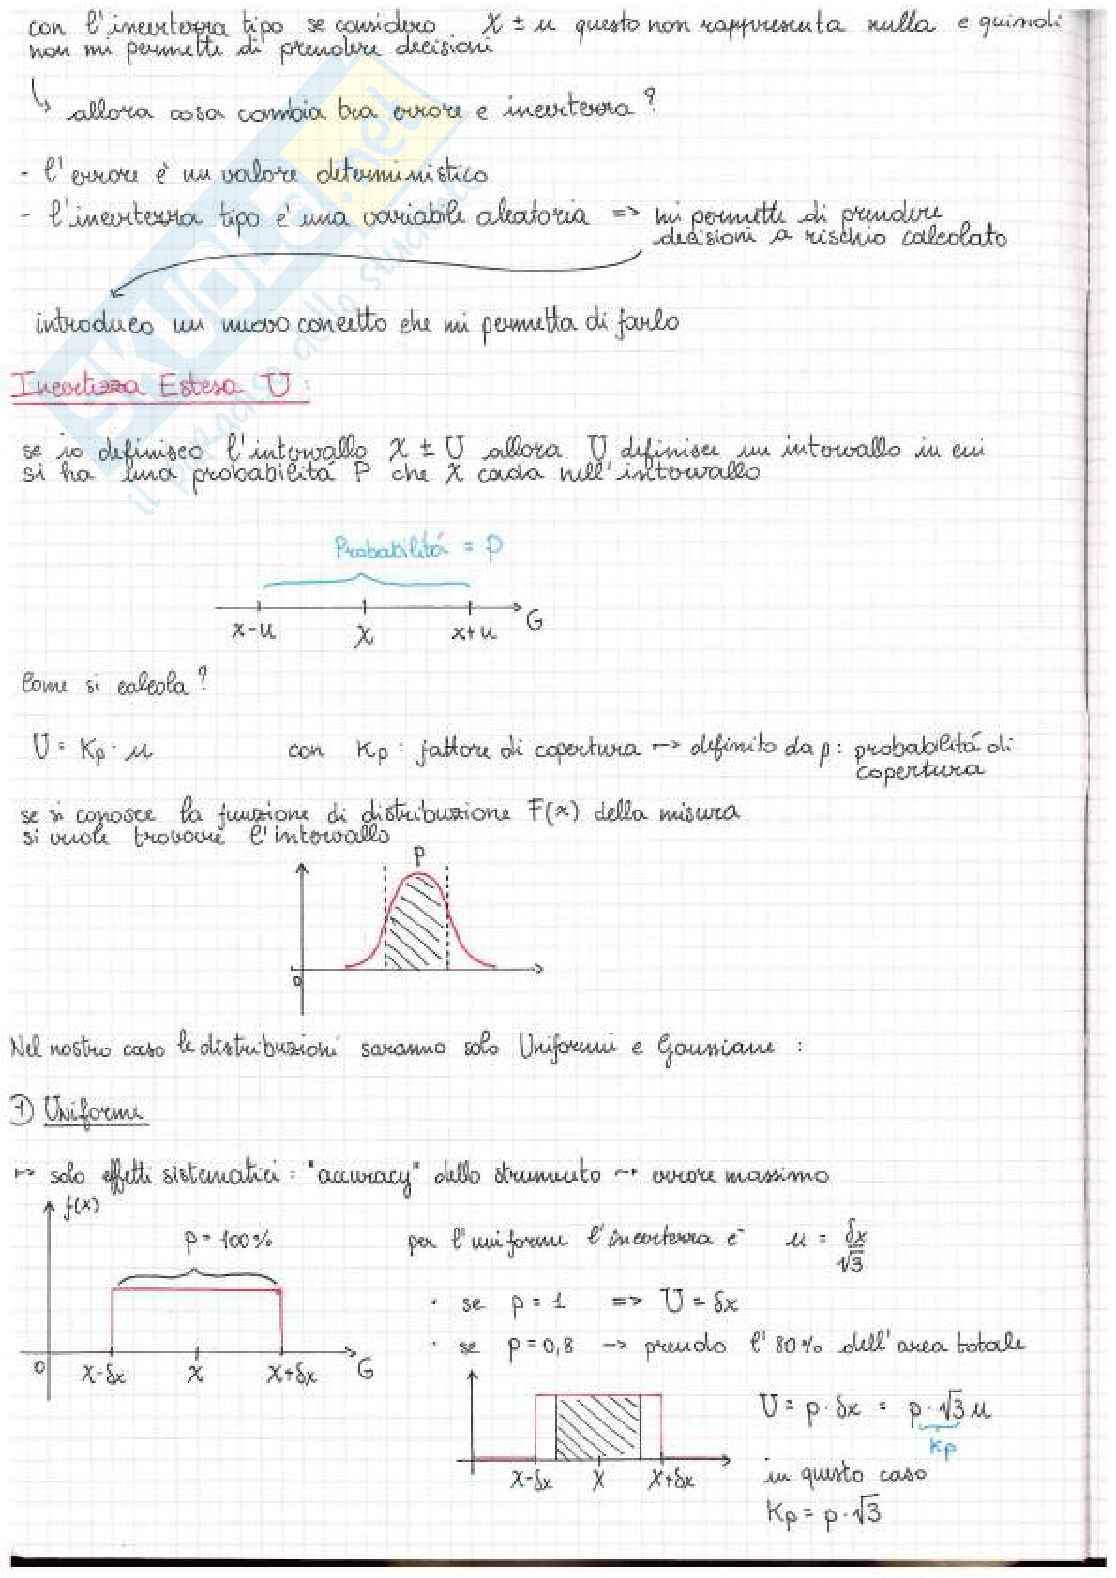 con l'incertezza tipo se considero X ± u questo non rappresenta nulla e quindi
non mi permette di prendere decisioni
allora cosa cambia tra errore e incertezza?
- l'errore è un valore deterministico
- l'incertezza tipo è una variabile aleatoria => mi permette di prendere
decisioni a rischio calcolato
introduco un nuovo concetto che mi permetta di farlo
Incertezza Estesa U:
se io definisco l'intervallo X ± U allora U definisce un intervallo in cui
si ha una probabilità P che X cada nell'intervallo
Probabilità = P
x-u X x+u G
Come si calcola?
U = Kp · u con Kp: fattore di copertura → definito da p: probabilità di
copertura
se si conosce la funzione di distribuzione F(x) della misura
si vuole trovare l'intervallo
P
0
Nel nostro caso le distribuzioni saranno solo Uniformi e Gaussiane:
1) Uniforme
↦ solo effetti sistematici: "accuracy" dello strumento → errore massimo
f(x)
p = 100%
0 X-δx X X+δx G
per l'uniforme l'incertezza è u = δx/√3
· se p = 1 => U = δx
· se p = 0,8 → prendo l'80% dell'area totale
X-δx X X+δx
U = p · δx = p · √3 u
Kp
in questo caso
Kp = p · √3
SKUOLA.net
il paradiso dello studente